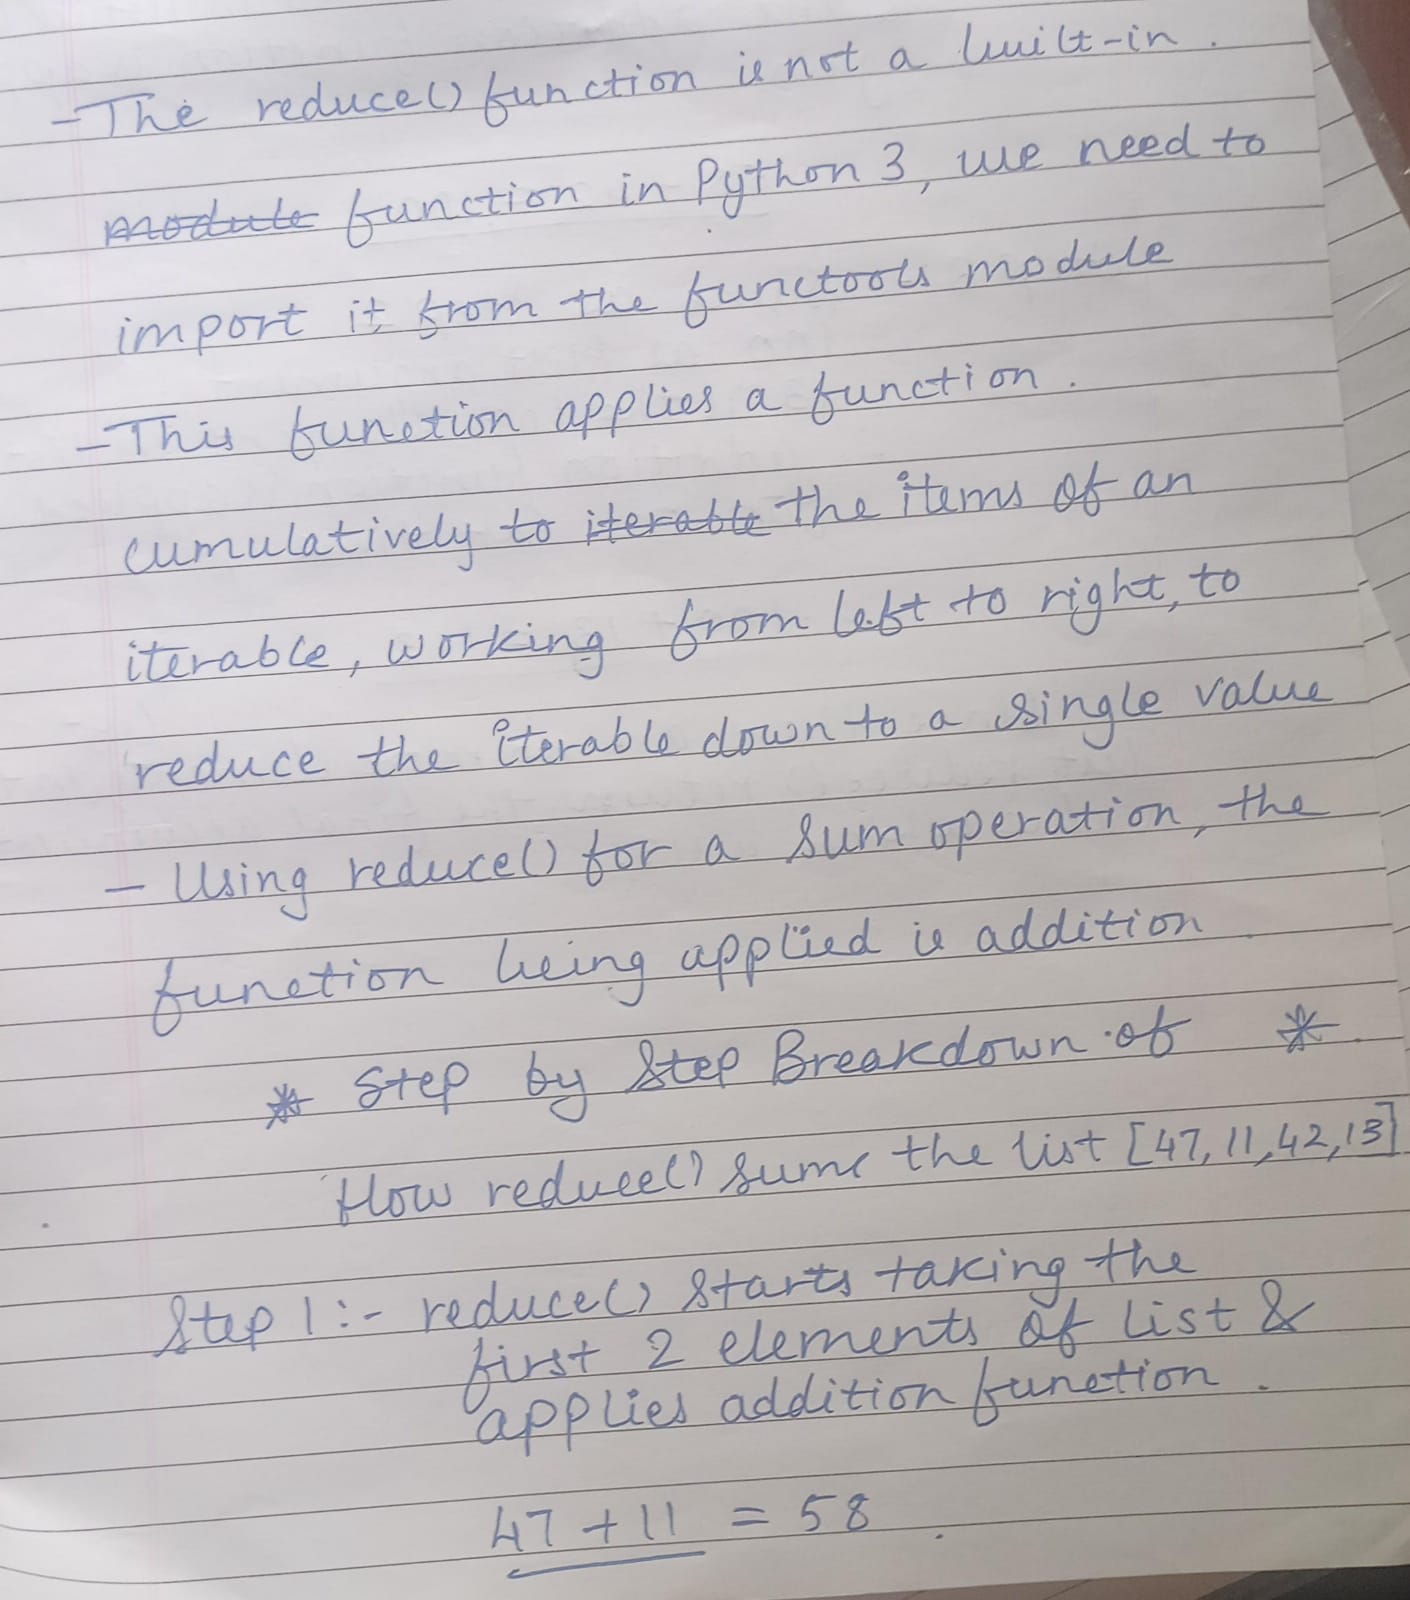 - The reduce() function is not a built-in.
module function in Python 3, we need to
import it from the functools module
- This function applies a function.
cumulatively to iterable the items of an
iterable, working from left to right, to
reduce the iterable down to a single value
- Using reduce() for a sum operation, the
function being applied is addition.
* Step by Step Breakdown of *
How reduce() sums the list [47, 11, 42, 13]
Step 1 :- reduce() starts taking the
first 2 elements of list &
applies addition function.
47 + 11 = 58.